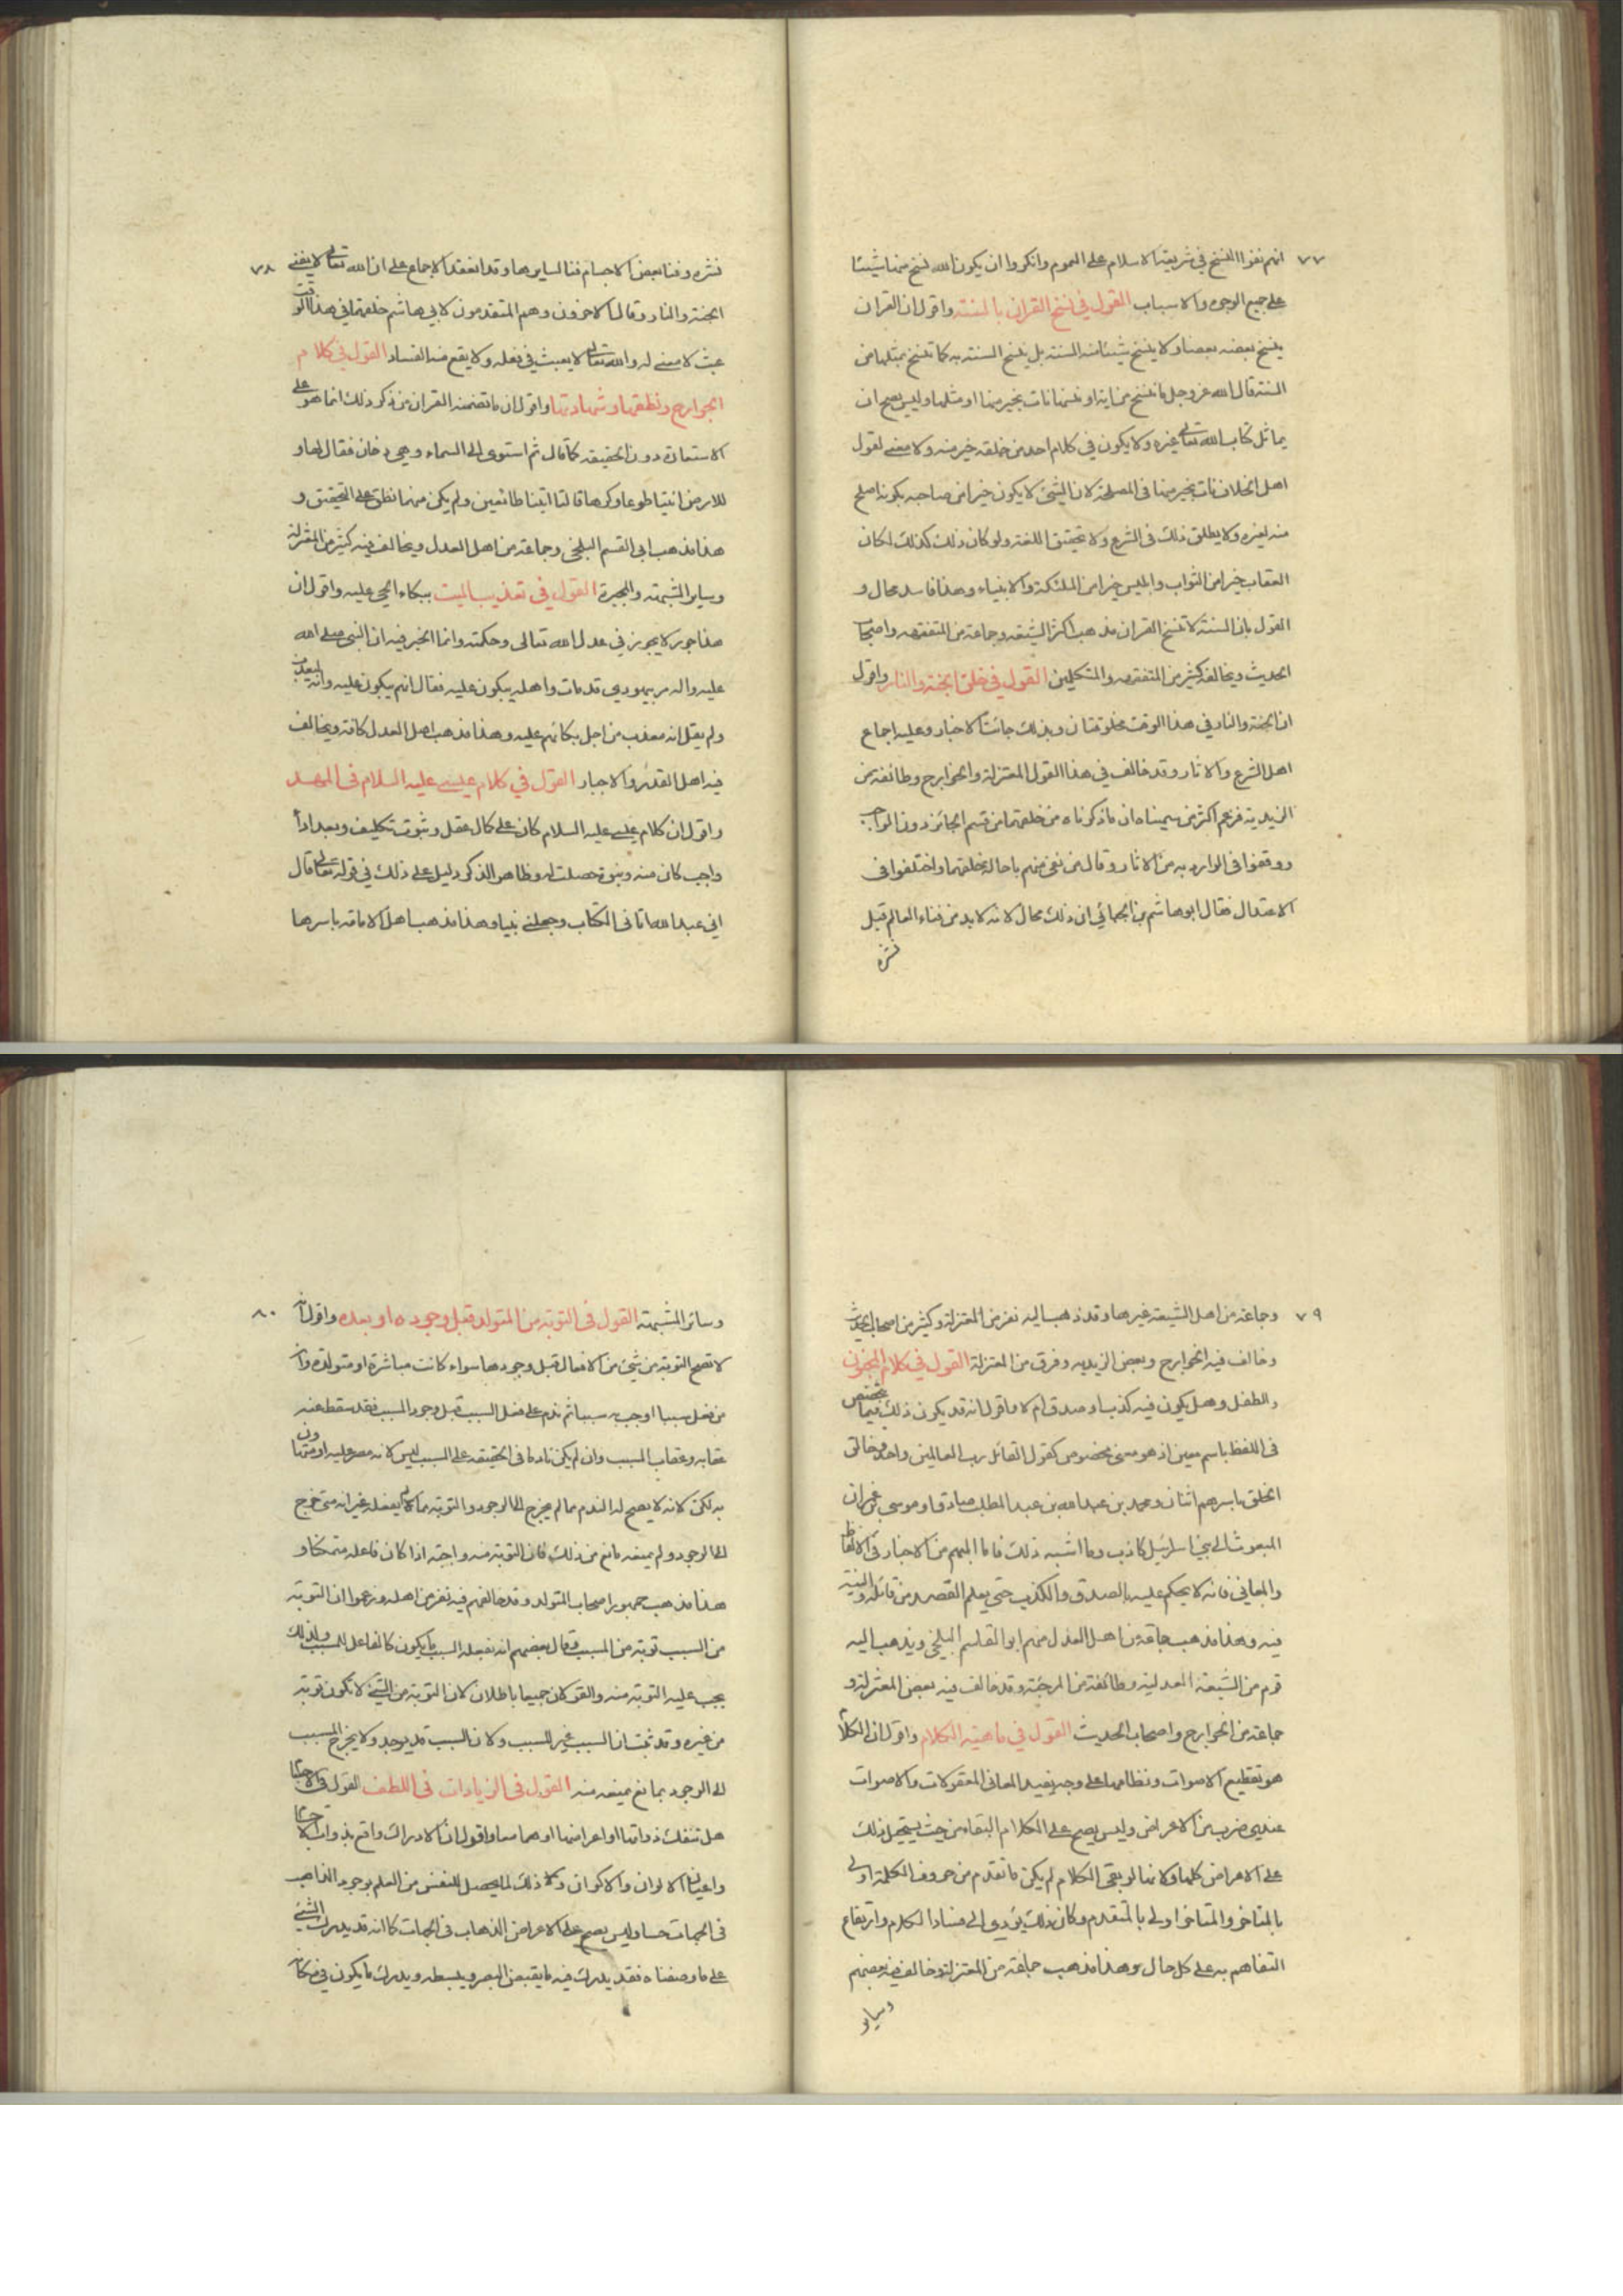 ٧٧
انهم نفوا النسخ في شريعة الاسلام على العموم وانكروا ان يكون الله نسخ منها شيئا
على جميع الوجوه والاسباب القول في نسخ القران بالسنة واقول ان القران
ينسخ بعضه بعضا ولا ينسخ شيئا منه السنة بل ينسخ السنة به كما تنسخ بمثلها من
السنة قال الله عز وجل ما ننسخ من اية او ننسها نات بخير منها او مثلها وليس يصح ان
يماثل كتاب الله تعالى غيره ولا يكون في كلام احد من خلقه خير منه ولا معنى لقول
اهل الخلاف نات بخير منها في المصلحة لان الشئ لا يكون خيرا من صاحبه بكونه اصلح
منه لغيره ولا يطلق ذلك في الشرع ولا تحقيق اللغة ولو كان ذلك كذلك لكان
العقاب خيرا من الثواب وابليس خيرا من الملئكة والانبياء وهذا فاسد محال و
القول بان السنة لا تنسخ القران مذهب اكثر الشيعة وجماعة من المتفقهه واصحاب
الحديث ويخالفه كثير من المتفقهه والمتكلمين القول في خلق الجنة والنار واقول
ان الجنة والنار في هذا الوقت مخلوقتان وبذلك جائت الاخبار وعليه اجماع
اهل الشرع والاثار وقد خالف في هذا القول المعتزلة والخوارج وطائفة من
الزيدية فزعم اكثر من سميناه ان ما ذكرناه من خلقهما من قسم الجائز دون الواجب
ووقفوا في الوارد به من الاثار وقال من نفى منهم باحالة خلقهما واختلفوا في
الاعتدال فقال ابو هاشم بن الجبائي ان ذلك محال لانه لا بد من فناء العالم قبل
نشره
٧٨
نشره وفناء بعض الاجسام فناء لسايرها وقد انعقد الاجماع على ان الله تعالى لا يفني
الجنة والنار وقال الاخرون وهم المتقدمون لابي هاشم خلقهما في هذا الوقت
عبث لا معنى له والله تعالى لا يعبث في فعله ولا يقع منه الفساد القول في كلام
الجوارح ونطقها وشهادتها واقول ان ما تضمنه القران من ذكر ذلك انما هو على
الاستعارة دون الحقيقة كما قال ثم استوى الى السماء وهي دخان فقال لها و
للارض ائتيا طوعا وكرها قالتا اتينا طائعين ولم يكن منهما نطق على التحقيق و
هذا مذهب ابي القسم البلخي وجماعة من اهل العدل ويخالف فيه كثير من المعتزلة
وساير المشبهة والمجبرة القول في تعذيب الميت ببكاء الحي عليه واقول ان
هذا جور لا يجوز في عدل الله تعالى وحكمته وانما الخبر فيه ان النبي صلى الله
عليه واله مر بيهودي قد مات واهله يبكون عليه فقال انهم يبكون عليه وانه ليعذب
ولم يقل انه معذب من اجل بكائهم عليه وهذا مذهب اهل العدل كافة ويخالف
فيه اهل القدر والاجبار القول في كلام عيسى عليه السلام في المهد
واقول ان كلام عيسى عليه السلام كان على كمال عقل وثبوت تكليف وبعد اداء
واجب كان منه ونبوة حصلت له وظاهر الذكر دليل على ذلك في قوله تعالى قال
اني عبد الله اتاني الكتاب وجعلني نبيا وهذا مذهب اهل الامامة باسرها
٧٩
وجماعة من اهل الشيعة غيرها وقد ذهب اليه نفر من المعتزلة وكثير من اصحاب الحديث
وخالف فيه الخوارج وبعض الزيديه وفرق من المعتزلة القول في كلام المجنون
والطفل وهل يكون فيه كذب او صدق ام لا واقول انه قد يكون ذلك فيما تخصص
في اللفظ باسم معين اذ هو معنى مخصوص كقول القائل رب العالمين واحد وخالق
الخلق باسرهم اثنان ومحمد بن عبد الله بن عبد المطلب صادق وموسى بن عمران
المبعوث الى بني اسرائيل كاذب وما اشبه ذلك فاما المبهم من الاخبار في الالفاظ
والمعاني فانه لا يحكم عليه بالصدق والكذب حتى يعلم القصد من قائله والنية
فيه وهذا مذهب جماعة من اهل العدل منهم ابو القاسم البلخي ويذهب اليه
قوم من الشيعة العدلية وطائفة من المرجئة وقد خالف فيه بعض المعتزلة و
جماعة من الخوارج واصحاب الحديث القول في ماهية الكلام واقول ان الكلام
هو تقطيع الاصوات ونظامها على وجه يفيد المعاني المعقولات والاصوات
عندي ضرب من الاعراض وليس يصح على الكلام البقاء من حيث يستحيل ذلك
على الاعراض كلها ولانها لو بقى الكلام لم يكن ما تقدم من حروف الكلمة اولى
بالمتاخر والمتاخر اولى بالمتقدم وكان ذلك يؤدي الى فساد الكلام وارتفاع
التفاهم به على كل حال وهذا مذهب جماعة من المعتزلة وخالف فيه بعضهم
وساير
٨٠
وسائر المشبهة القول في التوبة من المتولد قبل وجوده او بعده واقول انه
لا تصح التوبة من شئ من الافعال قبل وجودها سواء كانت مباشرة او متولدة وان
من فعل سببا اوجب به سببا ثم ندم على فعل السبب قبل وجود المسبب فقد سقط عنه
عقابه وعقاب المسبب وان لم يكن نادما في الحقيقة على المسبب ليس لانه مصر عليه او متهاون
به لكن لانه لا يصح له الندم مما لم يخرج الى الوجود والتوبة مما لم يفعله غير انه متى خرج
الى الوجود ولم يمنعه مانع من ذلك فان التوبة منه واجبة اذا كان فاعله متمكنا و
هذا مذهب جمهور اصحاب المتولد وقد خالفهم فيه نفر من اهله وزعموا ان التوبة
من السبب توبة من المسبب وقال بعضهم انه بفعله السبب يكون كالفاعل للمسبب ولذلك
يجب عليه التوبة منه والقولان جميعا باطلان لان التوبة من الشئ لا تكون توبة
من غيره وقد ثبت ان السبب غير المسبب ولان السبب قد يوجد ولا يخرج المسبب
الى الوجود بمانع يمنعه منه القول في الزيادات في اللطف القول في الاجسام
هل تدرك ذواتها او اعراضها او هما معا واقول ان الادراك واقع بذوات الاجسام
واعيان الالوان والاكوان وكذلك لما يحصل للنفس من العلم بوجود الذاهب
في الجهات حسا وليس يصح على الاعراض الذهاب في الجهات كما انه قد يدرك الشئ
على ما وصفناه فقد يدرك فيه ما يقبض البصر ويبسطه ويدرك ما يكون في مكان